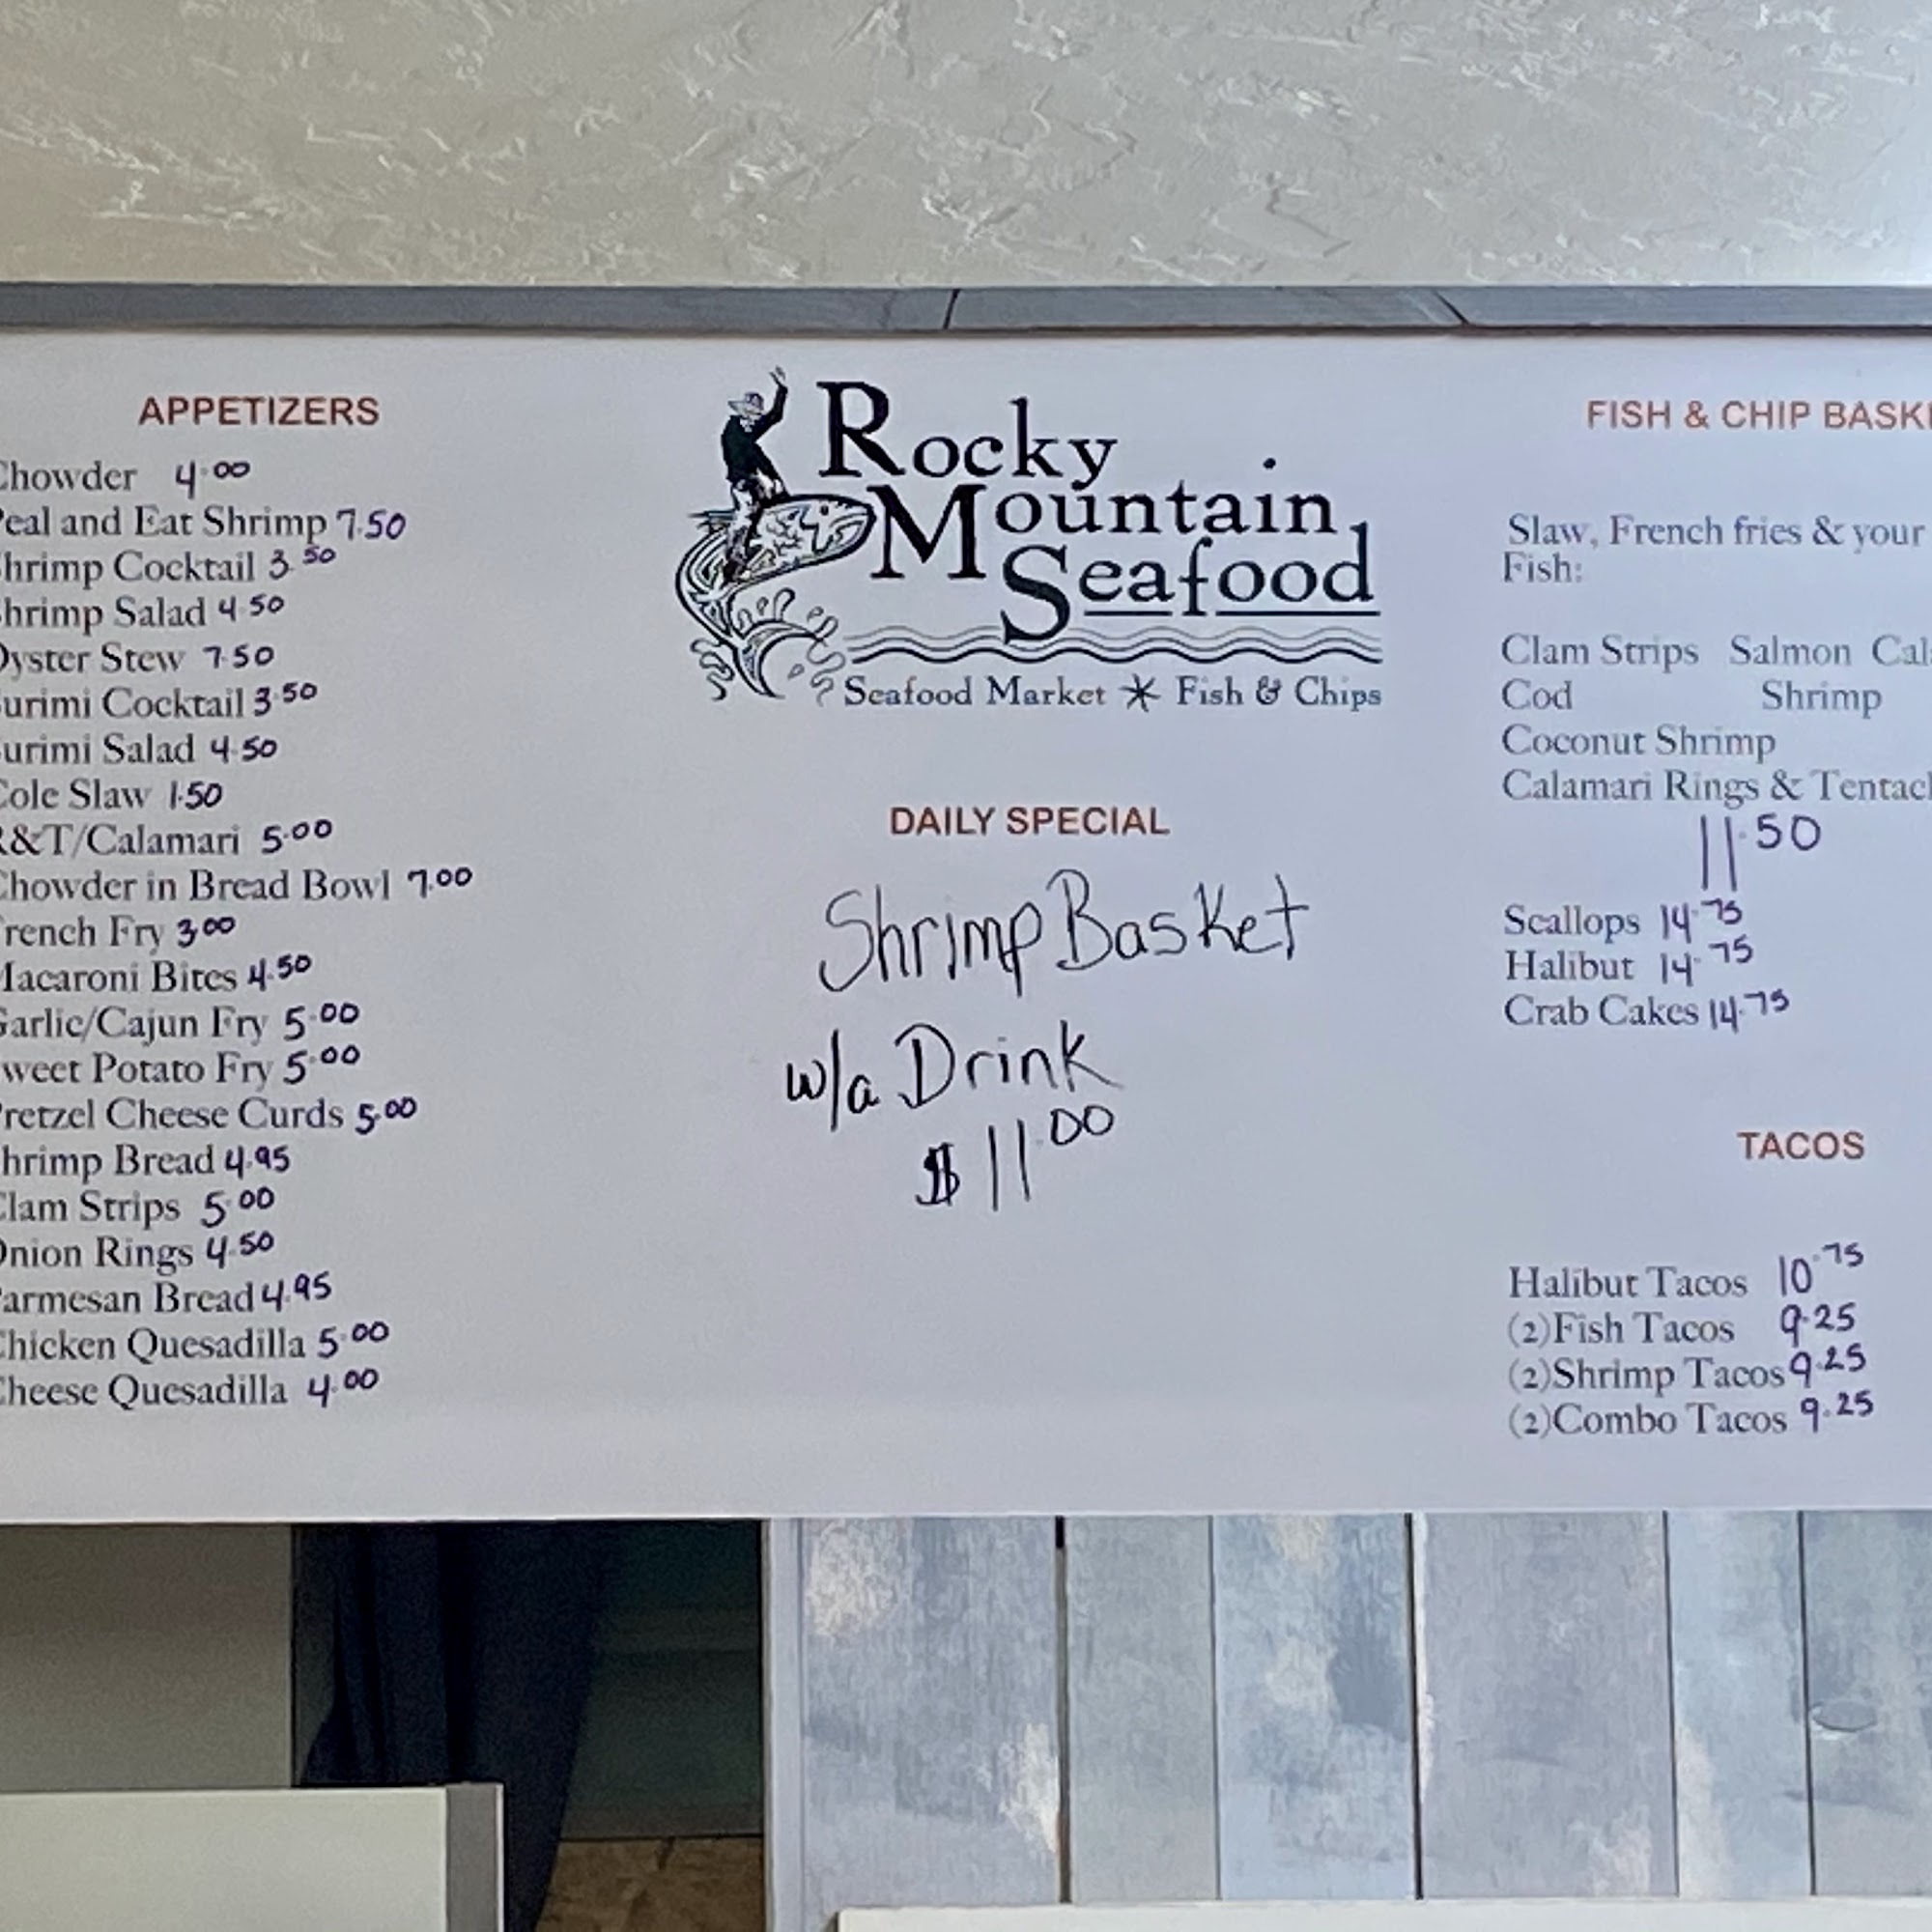 APPETIZERS
Chowder 4.00
Peal and Eat Shrimp 7.50
Shrimp Cocktail 3.50
Shrimp Salad 4.50
Oyster Stew 7.50
Surimi Cocktail 3.50
Surimi Salad 4.50
Cole Slaw 1.50
R&T/Calamari 5.00
Chowder in Bread Bowl 7.00
French Fry 3.00
Macaroni Bites 4.50
Garlic/Cajun Fry 5.00
Sweet Potato Fry 5.00
Pretzel Cheese Curds 5.00
Shrimp Bread 4.95
Clam Strips 5.00
Onion Rings 4.50
Parmesan Bread 4.95
Chicken Quesadilla 5.00
Cheese Quesadilla 4.00
Rocky
Mountain
Seafood
Seafood Market * Fish & Chips
DAILY SPECIAL
Shrimp Basket
w/a Drink
$11.00
FISH & CHIP BASK
Slaw, French fries & your
Fish:
Clam Strips Salmon Cal
Cod Shrimp
Coconut Shrimp
Calamari Rings & Tentac
11.50
Scallops 14.75
Halibut 14.75
Crab Cakes 14.75
TACOS
Halibut Tacos 10.75
(2)Fish Tacos 9.25
(2)Shrimp Tacos 9.25
(2)Combo Tacos 9.25